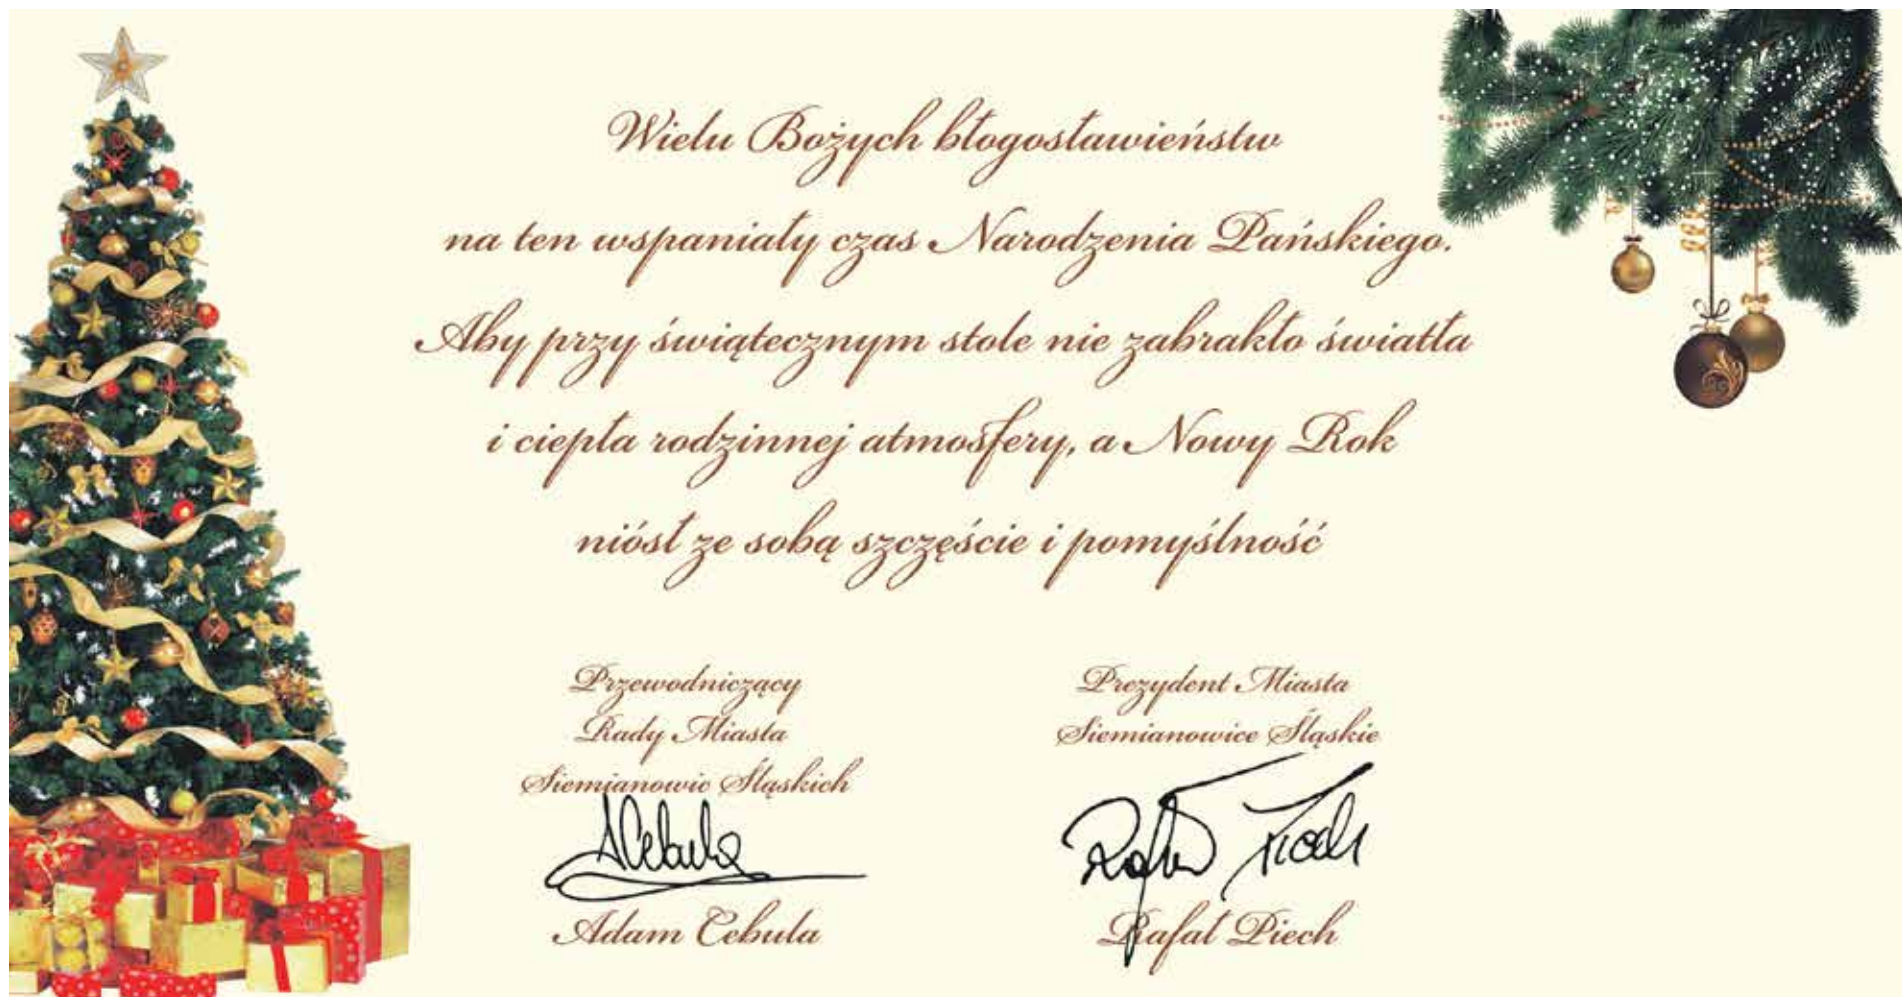 Wielu Bożych błogosławieństw
na ten wspaniały czas Narodzenia Pańskiego.
Aby przy świątecznym stole nie zabrakło światła
i ciepła rodzinnej atmosfery, a Nowy Rok
niósł ze sobą szczęście i pomyślność
Przewodniczący
Rady Miasta
Siemianowic Śląskich
ACebula
Adam Cebula
Prezydent Miasta
Siemianowice Śląskie
Rafał Piech
Rafał Piech